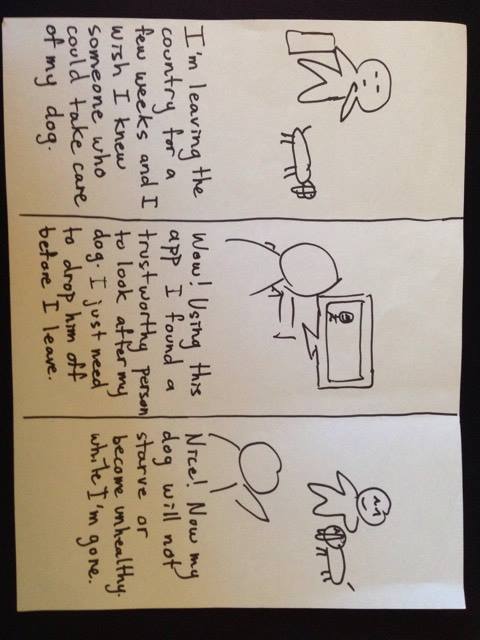 I'm leaving the
country for a
few weeks and I
wish I knew
someone who
could take care
of my dog.
Wow! Using this
app I found a
trustworthy person
to look after my
dog. I just need
to drop him off
before I leave.
Nice! Now my
dog will not
starve or
become unhealthy
while I'm gone.